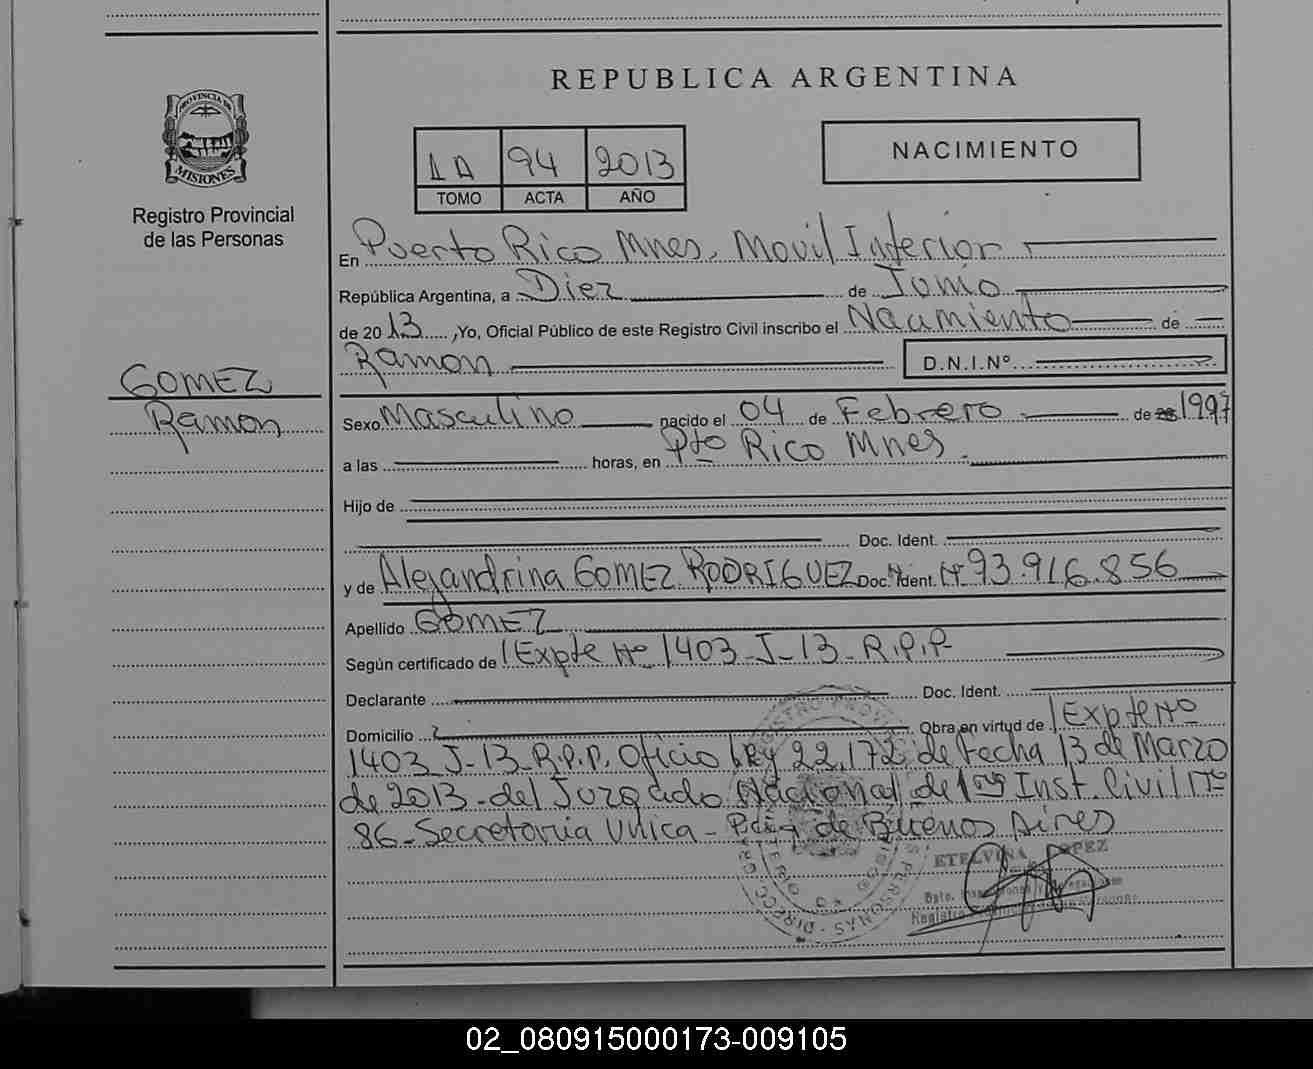 REPUBLICA ARGENTINA
PROVINCIA DE
MISIONES
Registro Provincial
de las Personas
1A 94 2013
TOMO ACTA AÑO
NACIMIENTO
En Puerto Rico Mnes, Movil Interior
República Argentina, a Diez de Junio
de 2013, Yo, Oficial Público de este Registro Civil inscribo el Nacimiento de
Ramon D.N.I.Nº
GOMEZ
Ramon
Sexo Masculino nacido el 04 de Febrero de 1997
a las horas, en Pto Rico Mnes.
Hijo de
Doc. Ident.
y de Alejandrina GOMEZ RODRIGUEZ Doc. Ident. Nº 93.916.856
Apellido GOMEZ
Según certificado de Expte Nº 1403-J-13-R.P.P
Declarante Doc. Ident.
Domicilio Obra en virtud de Expte Nº
1403-J-13-R.P.P. Oficio Ley 22.172 de Fecha 13 de Marzo
de 2013-del Juzgado Nacional de 1ra Inst. Civil Nº
86-Secretaria Unica- de Buenos Aires
ETELVINA LOPEZ
02_080915000173-009105